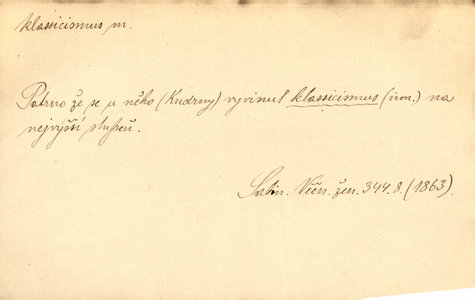 klassicismus m.
Patrno že se u něho (Kudrny) vyvinul klassicismus (iron.) na
nejvyšší stupeň.
Sabin. Věčn. žen. 344. 8. (1863)